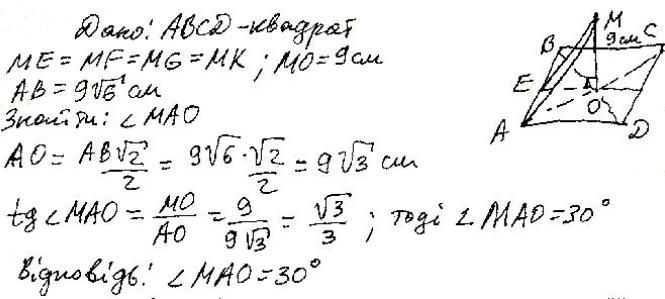 Дано: ABCD-квадрат
ME = MF = MG = MK ; MO = 9 см
AB = 9√6 см
Знайти: ∠MAO
AO = AB√2/2 = 9√6·√2/2 = 9√3 см
tg∠MAO = MO/AO = 9/9√3 = √3/3 ; тоді ∠MAO = 30°
Відповідь: ∠MAO = 30°
M
9 см
B
C
E
O
A
D